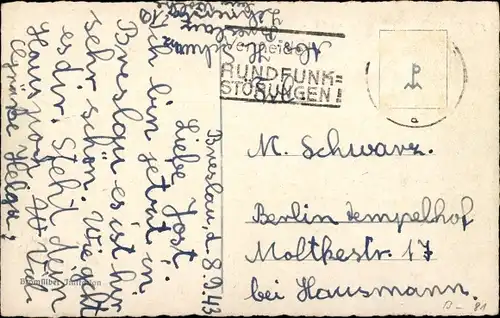 Abs. H. Schwarz
Breslau 10
Vermeidet
RUNDFUNK=
STÖRUNGEN!
Breslau, d. 8.9.43
Liebe Jost
Ich bin jetzt in
Breslau es ist hir
sehr schön. Wie geht
es dir. Steht dein
Haus noch.
Grüße Helga,
M. Schwarz.
Berlin Tempelhof
Moltkestr. 17
bei Hausmann.
Bromsilber Imitation